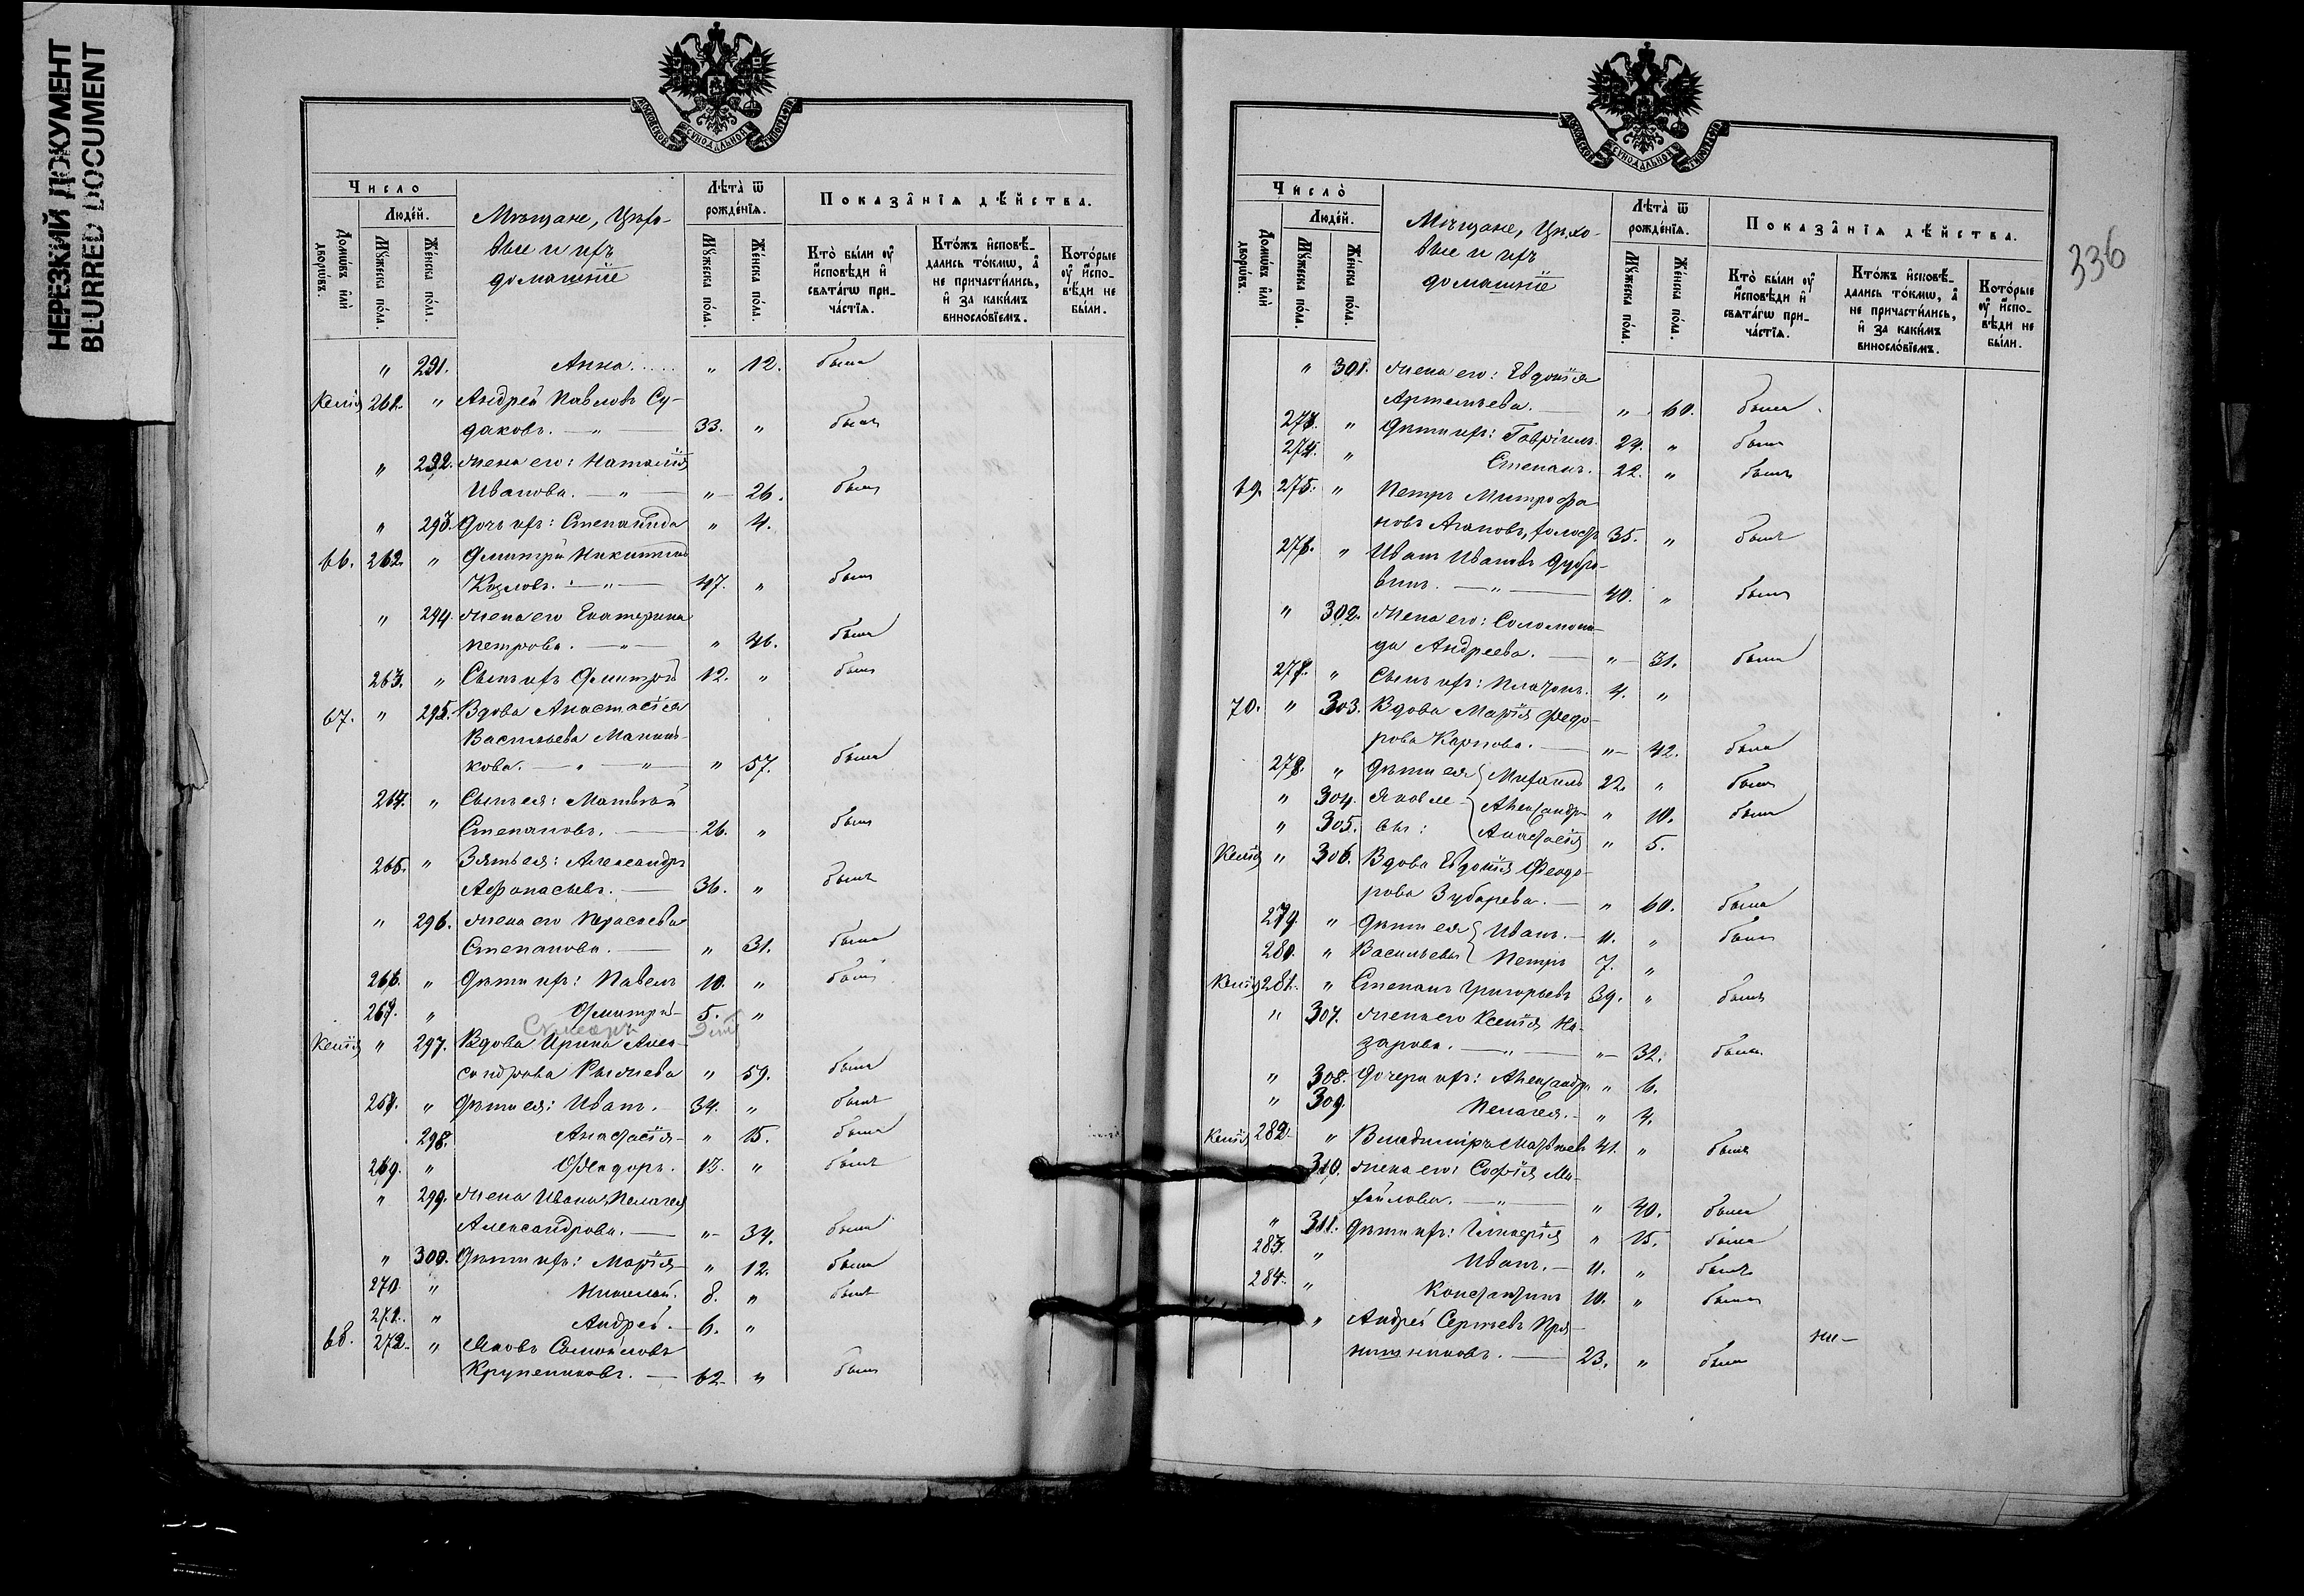 НЕРЕЗКИЙ ДОКУМЕНТ
BLURRED DOCUMENT
МОСКОВСКОЙ СѴНОДАЛЬНОЙ ТИПОГРАФІИ
Число
Людей.
Домѡвъ и҆лѝ дворѡвъ.
Мꙋжеска пола.
Женска пола.
Мѣщане, Цехо-
вые и ихъ
домашніе
Лѣта ѿ рожденїѧ.
Мꙋжеска пола.
Женска пола.
Показанїѧ дѣйства.
Кто были ᲂу҆ исповѣди и свѧтагѡ при-
частїѧ.
Ктожъ исповѣ-
дались токмѡ, а не причастились, и за какимъ винословїемъ.
Которые ᲂу҆ испо-
вѣди не были.
" 291. Анна..... " 12. была
Келія 261. " Андрей Павловъ Су-
даковъ. — " — 33. " былъ
" 292. жена его: Наталія
Иванова. — " — " 26. была
" 293. Дочь ихъ: Степанида " 4.
66. 262. " Димитрій Никитинъ
Козловъ. — " — 47. " былъ
" 294. жена его Екатерина
Петрова. — " — " 46. была
263. " Сынъ ихъ Димитрій 12. " былъ
67. " 295. Вдова Анастасія
Васильева Манни-
кова. — " — " — " 57. была
264. " Сынъ ея: Матвѣй
Степановъ. — 26. " былъ
265. " Зять ея: Александръ
Афанасьевъ. — 36. " былъ
" 296. жена его Параскева
Степанова. — " 31. была
266. " Дѣти ихъ: Павелъ 10. " былъ
267. " Димитрій 5. "
Келія " 297. Вдова Ирина Алек-
сандрова Рыжева " 59. была
268. " Дѣти ея: Иванъ. — 34. " былъ
298. Анастасія " 15. была
269. " Ѳеодоръ. 13. " былъ
" 299. жена Ивана, Пелагея
Александрова. — " 34. была
" 300. Дѣти ихъ: Марія " 12. была
270. " Николай. 8. " былъ
271. " Андрей. 6. "
68. 272. " Яковъ Самойловъ
Крупениковъ. — 62. " былъ
МОСКОВСКОЙ СѴНОДАЛЬНОЙ ТИПОГРАФІИ
336
Число
Людей.
Домѡвъ и҆лѝ дворѡвъ.
Мꙋжеска пола.
Женска пола.
Мѣщане, Цехо-
вые и ихъ
домашніе
Лѣта ѿ рожденїѧ.
Мꙋжеска пола.
Женска пола.
Показанїѧ дѣйства.
Кто были ᲂу҆ исповѣди и свѧтагѡ при-
частїѧ.
Ктожъ исповѣ-
дались токмѡ, а не причастились, и за какимъ винословїемъ.
Которые ᲂу҆ испо-
вѣди не были.
" 301. жена его: Евдокія
Артемьева. — " 60. была
273. " Дѣти ихъ: Гавріилъ 24. " былъ
274. " Степанъ. 22. " былъ
69. 275. " Петръ Митрофа-
новъ Агаповъ, холостъ 35. " былъ
276. " Иванъ Ивановъ Дубро-
винъ. — " — 40. " былъ
" 302. жена его: Соломони-
да Андреева. — " 31. была
277. " Сынъ ихъ: Платонъ. 4. "
70. " 303. Вдова Марія Ѳедо-
рова Карпова. — " 42. была
278. " Дѣти ея Михаилъ 22. " былъ
" 304. Яковле- Александра " 10. была
" 305. вы: Анастасія " 5.
Келія " 306. Вдова Евдокія Ѳеодо-
рова Зубарева. — " 60. была
279. " Дѣти ея Иванъ. — 11. " былъ
280. " Васильевы Петръ 7. "
Келія 281. " Степанъ Григорьевъ 39. " былъ
" 307. жена его Ксенія На-
зарова. — " — " 32. была
" 308. Дочери ихъ: Александра " 6.
" 309. Пелагея. " 4.
Келія 282. " Владиміръ 41. " былъ
310. жена его: Софія Ми-
хайлова. — " — " 40. была
" 311. Дѣти ихъ: " 15. была
283. " Иванъ. — 11. " былъ
284. " Константинъ 10. " былъ
" Андрей Сергѣевъ Пря-
нишниковъ. — 23. " былъ